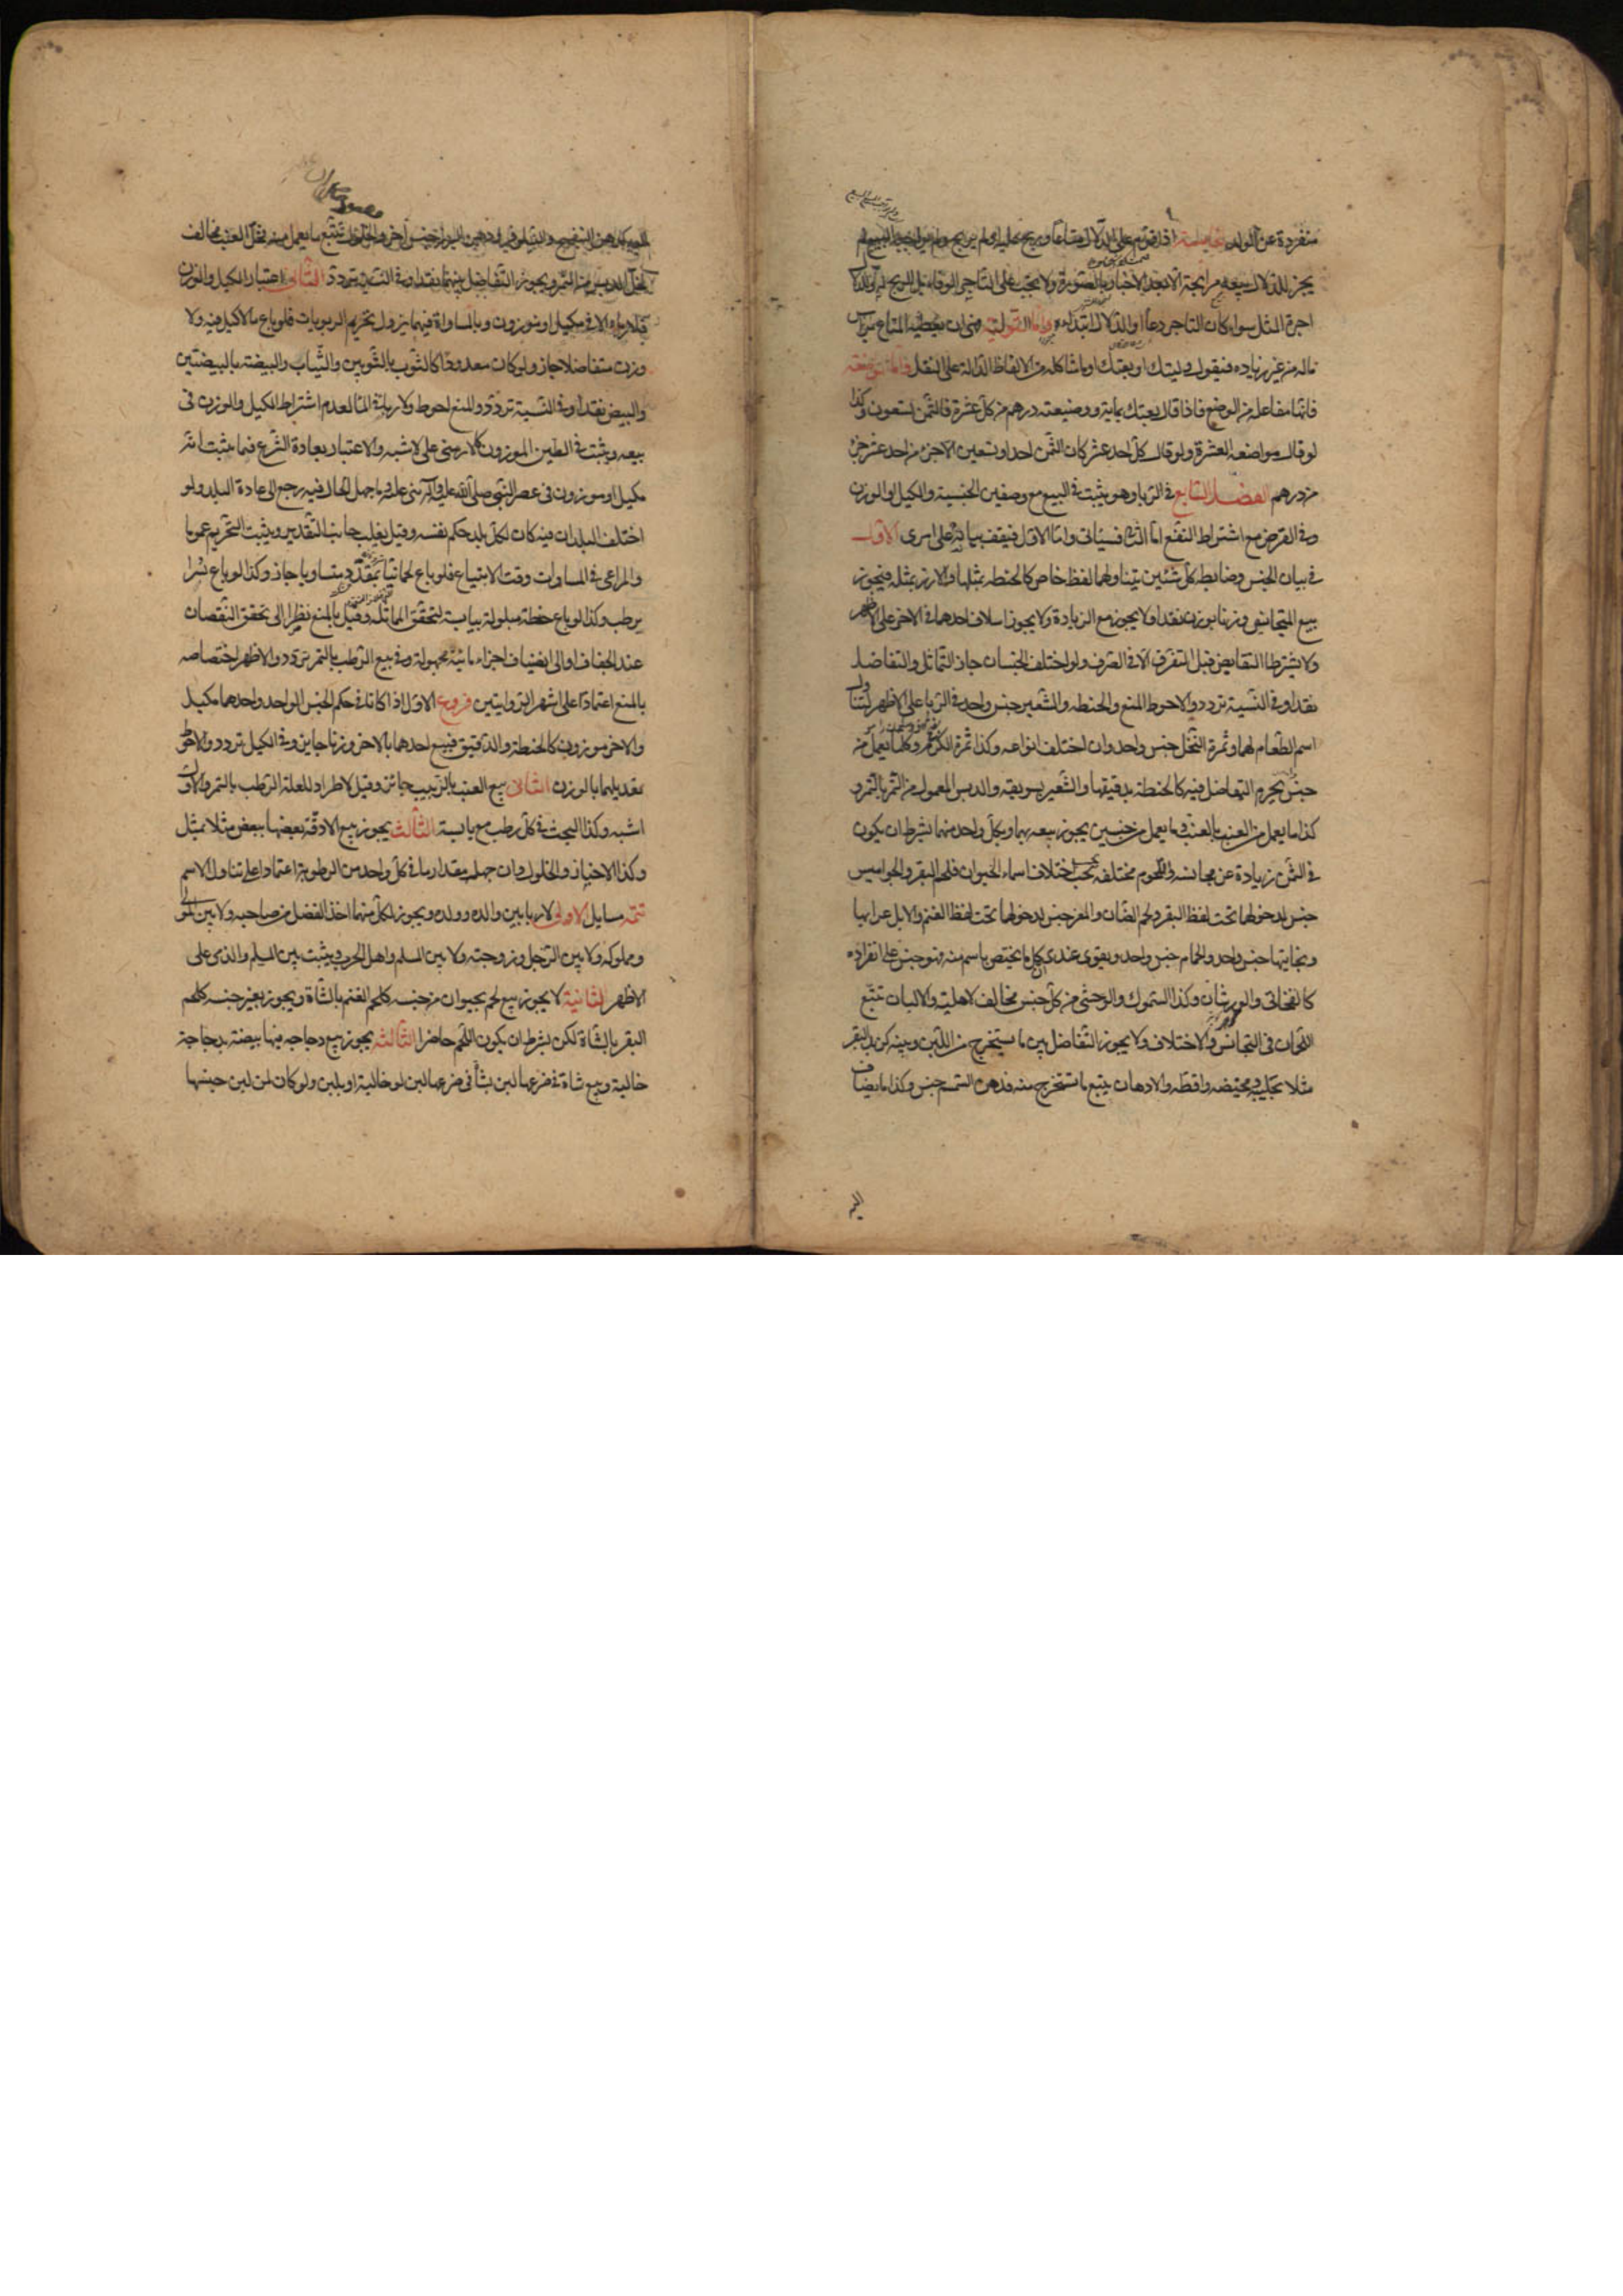 منفردة عن الولد الخامسة اذا قوم على الدلال متاعا ولم يربح ولم يواجبه البيع لم
يجز للدلال بيعه مرابحة الا بعد الاخبار بالصورة ولا يجب على التاجر الوفاء بل الربح له وللدلال
اجرة المثل سواء كان التاجر دعاه او الدلال ابتداه واما التولية فهي ان يعطيه المتاع براس
ماله من غير زياده فيقول وليتك او بعتك او ما شاكله من الالفاظ الدالة على النقل واما المواضعه
فانها مفاعله من الوضع فاذا قال بعتك بماية ووضيعته درهم من كل عشرة فالثمن تسعون وكذا
لو قال مواضعه العشرة ولو قال كل احد عشر كان الثمن احدا وتسعين الا جزء من احد عشر جزء
من درهم الفصل السابع في الربا وهو يثبت في البيع مع وصفين الجنسية والكيل او الوزن
وفي القرض مع اشتراط النفع اما الثاني فسيأتي واما الاول فيقف بيانه على امور الاول
في بيان الجنس وضابطه كل شئين يتناولهما لفظ خاص كالحنطه بمثلها والارز بمثله فيجوز
بيع المتجانس وزنا بوزن نقدا ولا يجوز مع الزيادة ولا يجوز اسلاف احدهما في الاخر على الاظهر
ولا يشترط التقابض قبل التفرق الا في الصرف ولو اختلف الجنسان جاز التماثل والتفاضل
نقدا وفي النسية تردد والاحوط المنع والحنطه والشعير جنس واحد في الربا على الاظهر لتناول
اسم الطعام لهما وثمرة النخل جنس واحد وان اختلف انواعه وكذا ثمرة الكرم وكلما يعمل من
جنس يحرم التفاضل فيه كالحنطة بدقيقها والشعير بسويقه والدبس المعمول من التمر بالتمر و
كذا ما يعمل من العنب بالعنب وما يعمل من جنسين يجوز بيعه بهما وبكل واحد منهما بشرط ان يكون
في الثمن زيادة عن مجانسه واللحوم مختلفه بحسب اختلاف اسماء الحيوان فلحم البقر والجواميس
جنس لدخولهما تحت لفظ البقر ولحم الضان والمعز جنس لدخولهما تحت لفظ الغنم والابل عرابها
وبخاتيها جنس واحد والحمام جنس واحد ويقوى عندي ان كل ما يختص باسم منه فهو جنس على انفراده
كالفخاتي والورشان وكذا السموك والوحشي من كل جنس مخالف لاهليته والالبان تتبع
اللحمان في التجانس والاختلاف ولا يجوز التفاضل بين ما يستخرج من اللبن وبينه كزبد البقر
مثلا بحليبه ومخيضه واقطه والادهان يتبع ما تستخرج منه فدهن السمسم جنس وكذا ما يضاف
اليه
اليه كدهن البنفسج والنيلوفر ودهن البزر جنس اخر والخلول تتبع ما يعمل منه فخل العنب مخالف
لخل الدبس ويجوز التفاضل بينهما نقدا وفي النسية تردد الثاني اعتبار الكيل والوزن
فلا ربا الا في مكيل او موزون وبالمساواة فيهما يزول تحريم الربويات فلو باع ما لا كيل فيه ولا
وزن متفاضلا جاز ولو كان معدودا كالثوب بالثوبين والثياب والبيضة بالبيضتين
والبيض نقدا وفي النسية تردد والمنع احوط ولا ربا في الماء لعدم اشتراط الكيل والوزن في
بيعه ويثبت في الطين الموزون كالارمني على الاشبه والاعتبار بعادة الشرع فما يثبت انه
مكيل او موزون في عصر النبي صلى الله عليه وآله بني عليه وما جهل الحال فيه رجع الى عادة البلد ولو
اختلف البلدان فيه كان لكل بلد حكم نفسه وقيل يغلب جانب التقدير ويثبت التحريم عموما
والمراعى في المساوات وقت الابتياع فلو باع لحما نيا بمقدد متساويا جاز وكذا لو باع بسرا
برطب وكذا لو باع حنطة مبلولة بيابسة لتحقق المماثلة وقيل بالمنع نظرا الى تحقق النقصان
عند الجفاف او الى انضياف اجزاء مائية مجهولة وفي بيع الرطب بالتمر تردد والاظهر اختصاصه
بالمنع اعتمادا على اشهر الروايتين فروع الاول اذا كانا في حكم الجنس الواحد واحدهما مكيل
والاخر موزون كالحنطة والدقيق فبيع احدهما بالاخر وزنا جايز وفي الكيل تردد والاحوط
تعديلهما بالوزن الثاني بيع العنب بالزبيب جائز وقيل لا طرادا لعلة الرطب بالتمر والاول
اشبه وكذا البحث في كل رطب مع يابسه الثالث يجوز بيع الادقة بعضها ببعض مثلا بمثل
وكذا الاخباز والخلول وان جهل مقدار ما في كل واحد من الرطوبة اعتمادا على تناول الاسم
تتمه مسايل الاولى لا ربا بين والده وولده ويجوز لكل منهما اخذ الفضل من صاحبه ولا بين المولى
ومملوكه ولا بين الرجل وزوجته ولا بين المسلم واهل الحرب ويثبت بين المسلم والذمي على
الاظهر الثانية لا يجوز بيع لحم بحيوان من جنسه كلحم الغنم بالشاة ويجوز بغير جنسه كلحم
البقر بالشاة لكن بشرط ان يكون اللحم حاضرا الثالثه يجوز بيع دجاجه فيها بيضة بدجاجة
خالية وبيع شاة في ضرعها لبن بشاة في ضرعها لبن او خالية او بلبن ولو كان من لبن جنسها